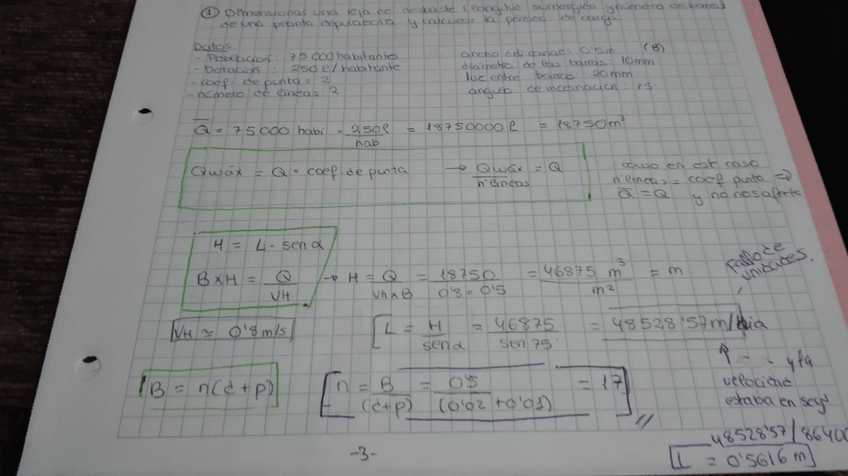 ① Dimensionar una reja de desbaste (longitud sumergida y número de barras)
de una planta depuradora y calcular la pérdida de carga
Datos
- Población: 75.000 habitantes
- Dotación: 250 l/habitante
- coef. de punta = 2
- número de líneas: 2
ancho del canal: 0'5m (B)
diámetro de las barras 10mm
luz entre barras 20mm
ángulo de inclinación: 75
Q = 75000 habi · 250l / hab = 18750000 l = 18750m³
Qmáx = Q · coef. de punta → Qmáx / nºlíneas = Q
como en est caso
nºlíneas = coef punta ⇒
Q = Q y no nos afecta
H = L · sen α
B x H = Q / VH → H = Q / VH x B = 18750 / 0'8 · 0'5 = 46875 m³ / m² = m
fallo de
unidades.
VH ≃ 0'8 m/s
L = H / sen α = 46875 / sen 75 = 48528'57 m/dia
↑ - - y la
velocidad
estaba en seg
B = n(c+p)
n = B / (c+p) = 0'5 / (0'02 + 0'01) = 17
48528'57/86400
L = 0'5616 m
-3-